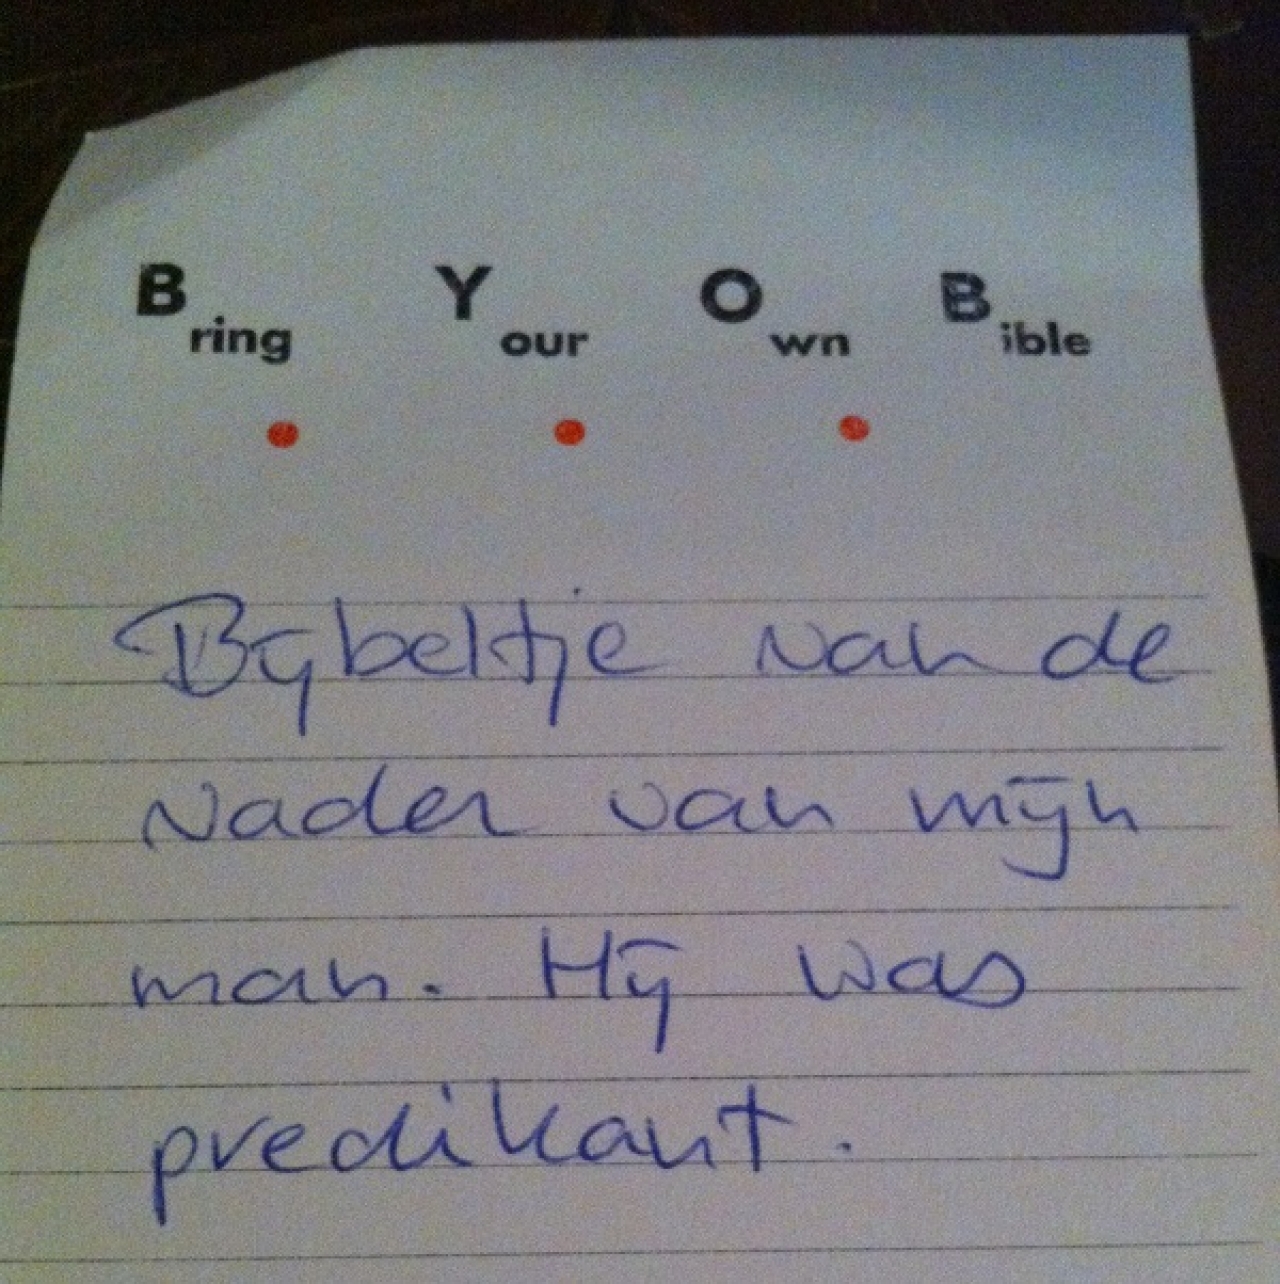 Bring Your Own Bible
Bijbeltje van de
vader van mijn
man. Hij was
predikant.